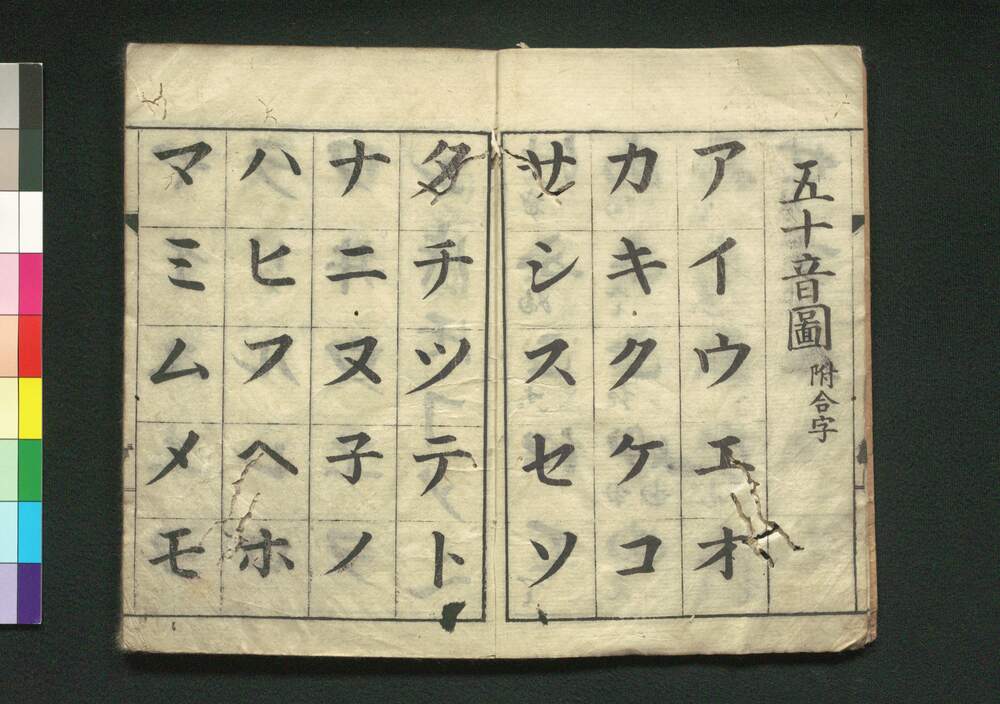 五十音圖 附合字
アイウエオ
カキクケコ
サシスセソ
タチツテト
ナニヌ子ノ
ハヒフヘホ
マミムメモ